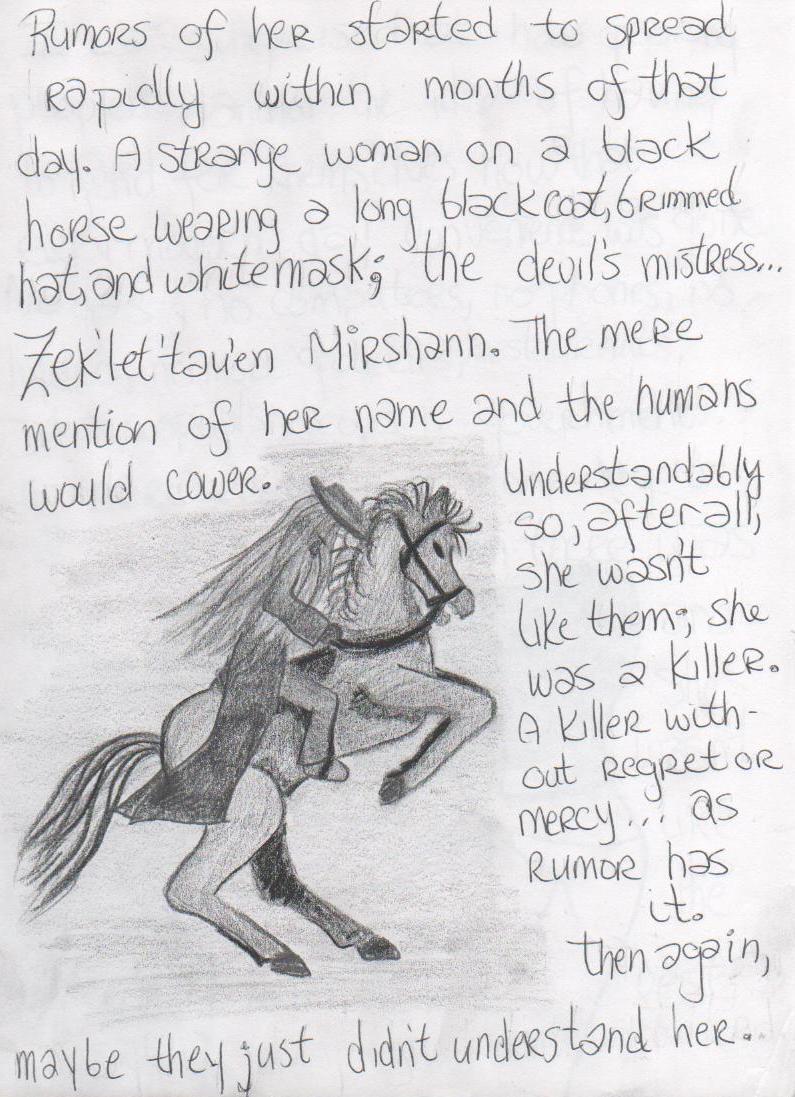 Rumors of her started to spread
rapidly within months of that
day. A strange woman on a black
horse wearing a long black coat, brimmed
hat, and white mask; the devil's mistress...
Zeklet'tau'en Mirshann. The mere
mention of her name and the humans
would cower.
Understandably
so, after all,
she wasn't
like them; she
was a killer.
A killer with-
out regret or
mercy... as
rumor has
it.
then again,
maybe they just didn't understand her...